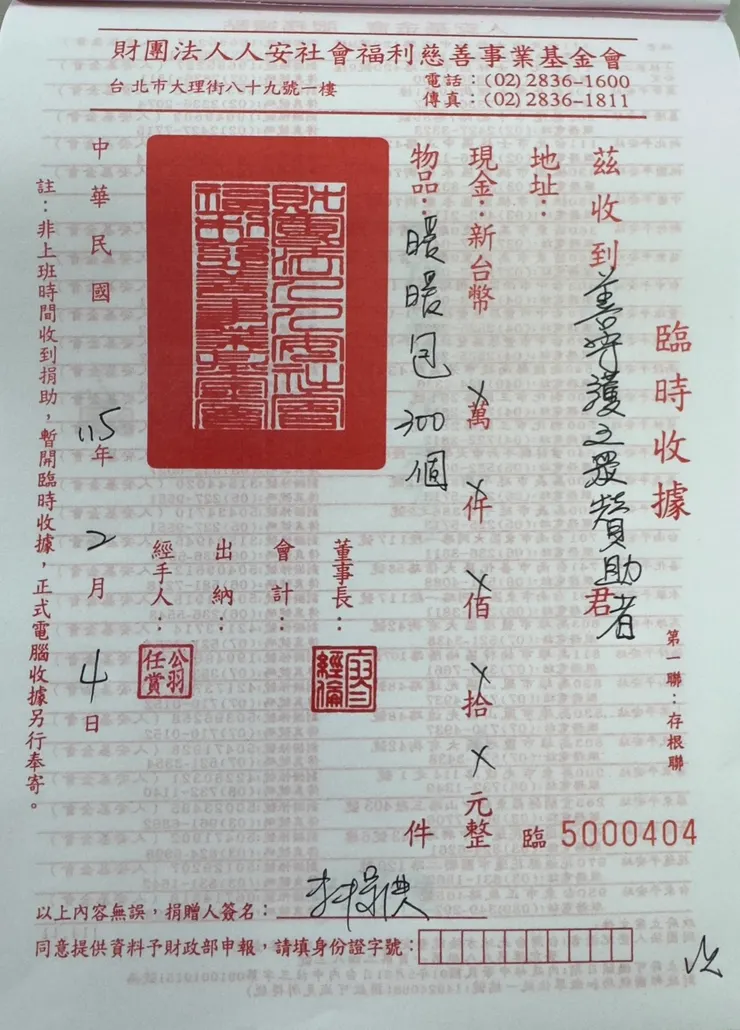 財團法人人安社會福利慈善事業基金會
台北市大理街八十九號一樓
電話：(02)2836-1600
傳真：(02)2836-1811
臨時收據
第一聯：存根聯
臨 5000404
茲收到善守護之眾贊助者君
地址：
現金：新台幣X萬X仟X佰X拾X元整
物品：暖暖包300個 件
董事長：
會計：
出納：
經手人：
財團法人人安社會福利慈善事業基金會
公羽任賞
中華民國115年2月4日
註：非上班時間收到捐助，暫開臨時收據，正式電腦收據另行奉寄。
以上內容無誤，捐贈人簽名：
同意提供資料予財政部申報，請填身份證字號：